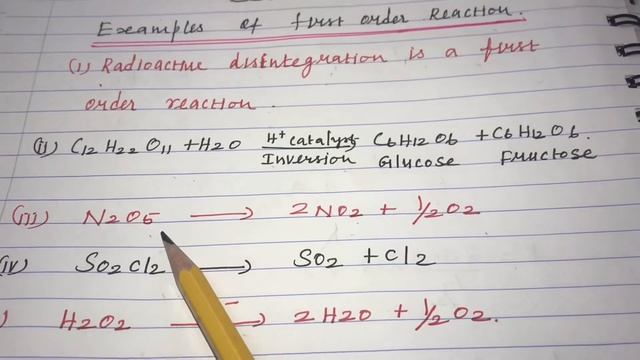 Examples of first order Reaction.
(i) Radioactive disintegration is a first
order reaction.
(ii) C12 H22 O11 + H2O H+ catalyst C6H12O6 + C6H12O6.
Inversion Glucose Fructose
(iii) N2O5 → 2NO2 + 1/2O2
(iv) SO2Cl2 → SO2 + Cl2
) H2O2 → 2H2O + 1/2O2.